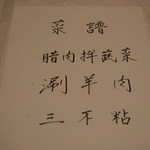 菜譜
腊肉拌蔬菜
涮羊肉
三不粘